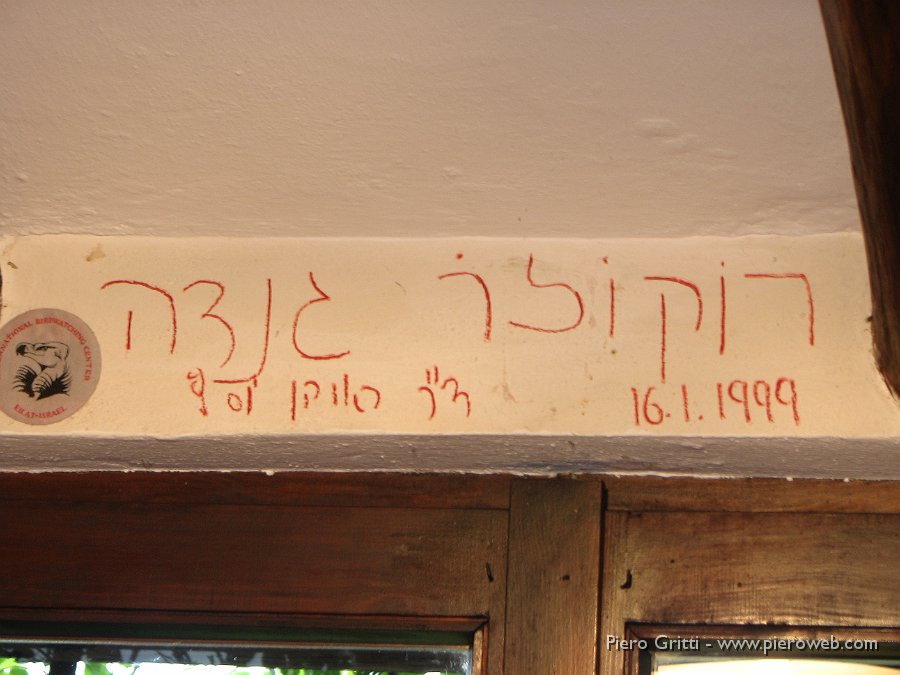 רוקולו גנדה
ד"ר ראובן יוסף 16.1.1999
NATIONAL BIRDWATCHING CENTER
EILAT-ISRAEL
Piero Gritti - www.pieroweb.com